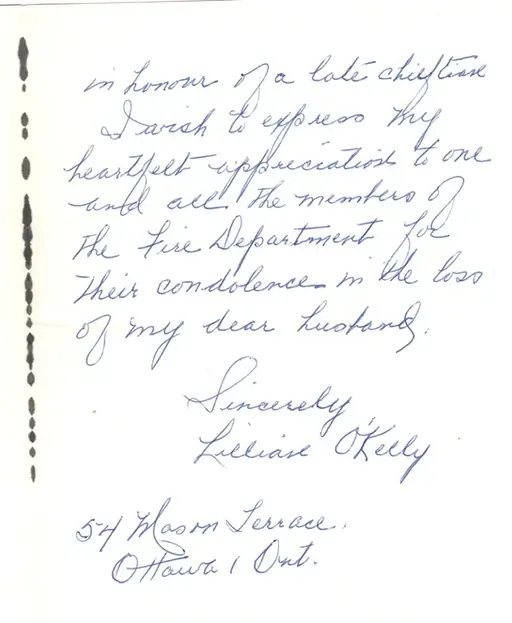 in honour of a late chieftian
I wish to express my
heartfelt appreciation to one
and all the members of
the Fire Department for
their condolence in the loss
of my dear husband.
Sincerely,
Lillian O'Kelly
54 Mason Terrace.
Ottawa 1 Ont.